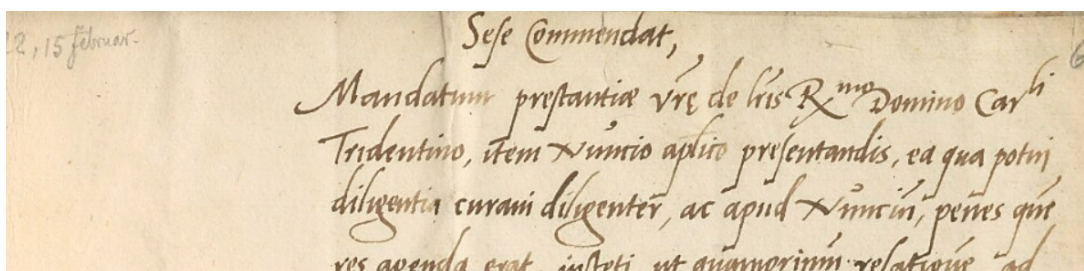 22, 15 februar.
Sese Commendat,
6
Mandatum prestantiæ vrę de lris Rmo Domino Carli
Tridentino, item Nuncio aplico presentandis, ea qua potui
diligentia curavi diligenter, ac apud Nunciū, penes quē
res agenda erat, institi, ut quamprimum relatione ad